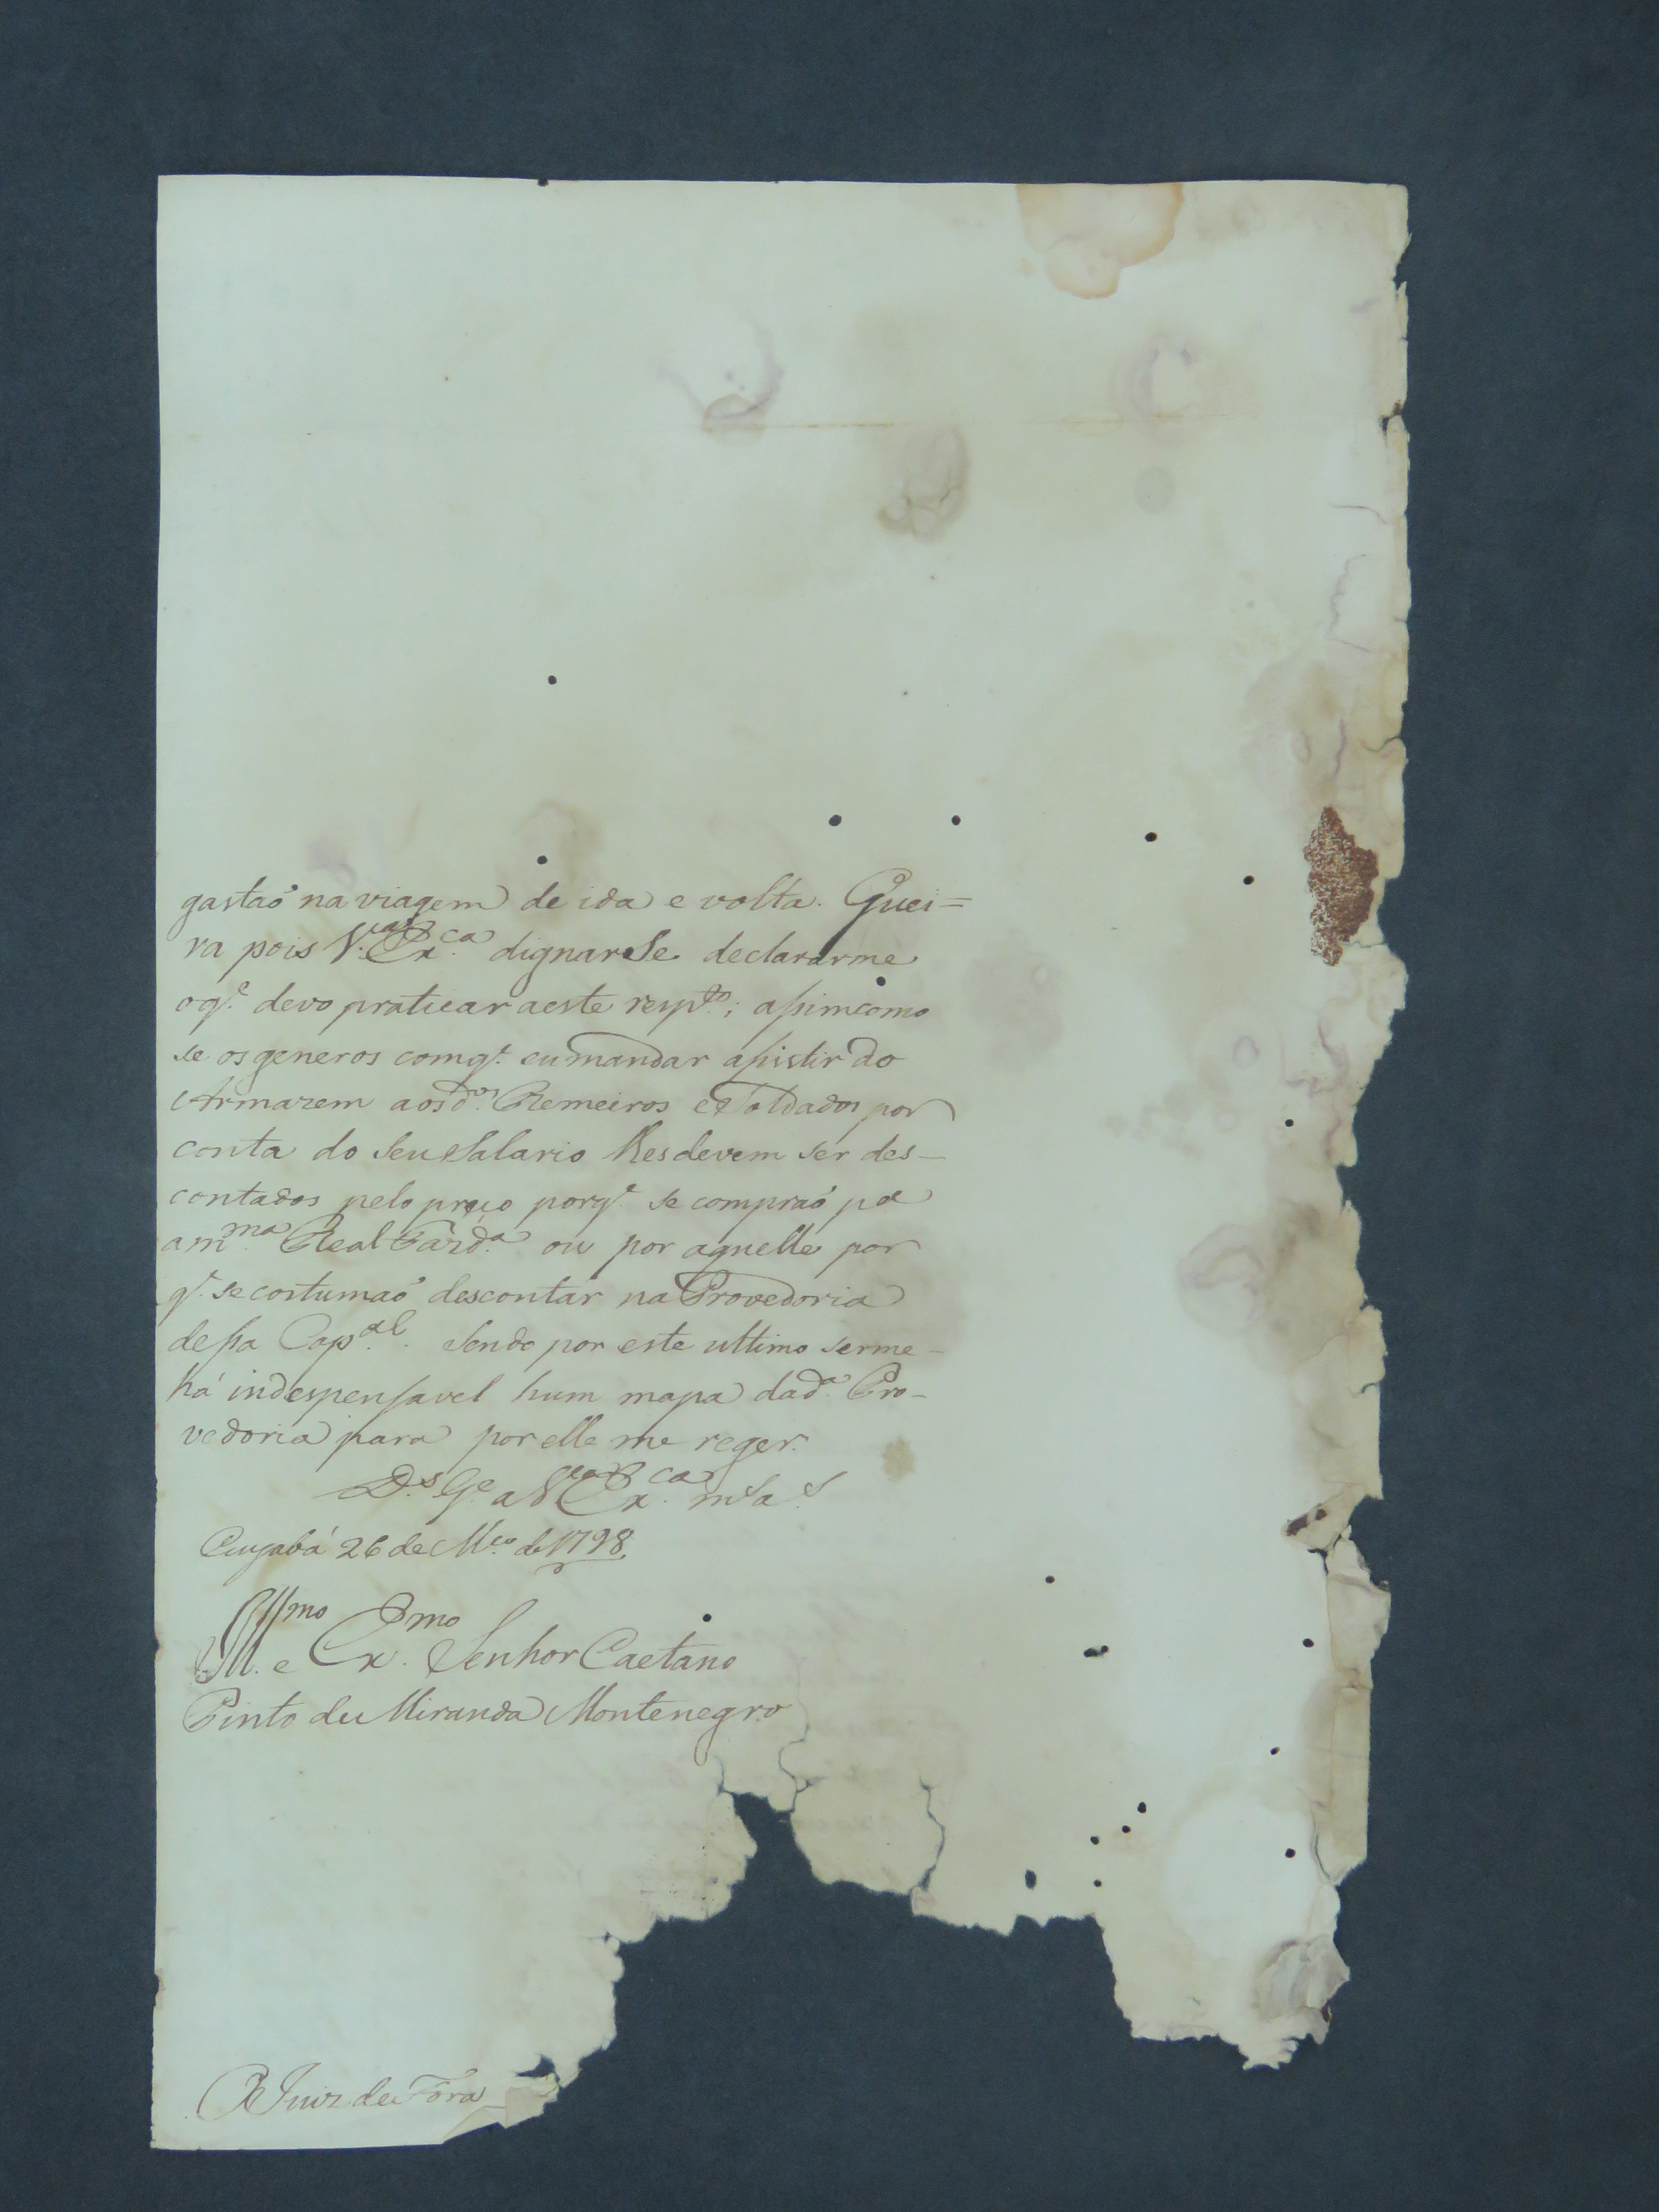 gastaõ na viagem de ida e volta. Quei=
ra pois V.ª Ex.ca dignarse declararme
o q.e devo praticar a este resp.to; assim como
se os generos com q.e eu mandar assistir do
Armazem aos d.os Remeiros e Soldados por
conta do seu Salario lhes devem ser des-
contados pelo preço porq.e se compraõ p.a
a m.ma Real Fazd.a ou por aquelle por
q.e se costumaõ descontar na Provedoria
dessa Cap.al. Sendo por este ultimo serme-
há indespensavel hum mapa da d.a Pro-
vedoria para por elle me reger.
D.s G.e a V.ª Ex.ca m.s a.s
Cuyabá 26 de M.ço de 1798.
Ill.mo e Ex.mo Senhor Caetano
Pinto de Miranda Montenegro
O Juiz de Fora